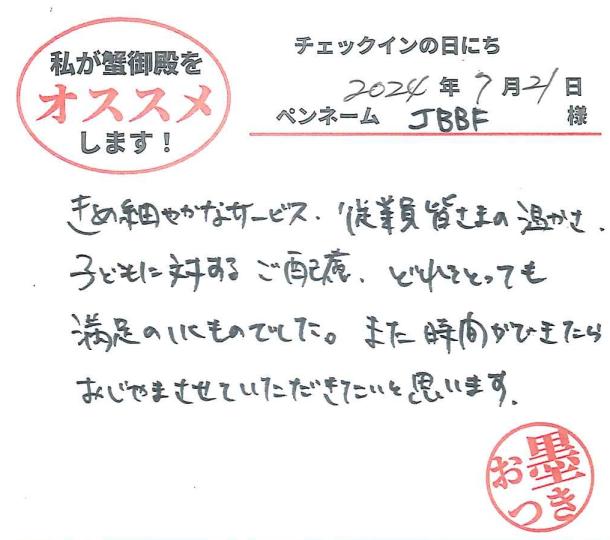 私が蟹御殿を
オススメ
します！
チェックインの日にち
2024年7月21日
ペンネーム JBBF 様
きめ細やかなサービス、従業員皆さまの温かさ、
子どもに対するご配慮、どれをとっても
満足のいくものでした。また時間ができたら
おじゃまさせていただきたいと思います。
お墨
つき